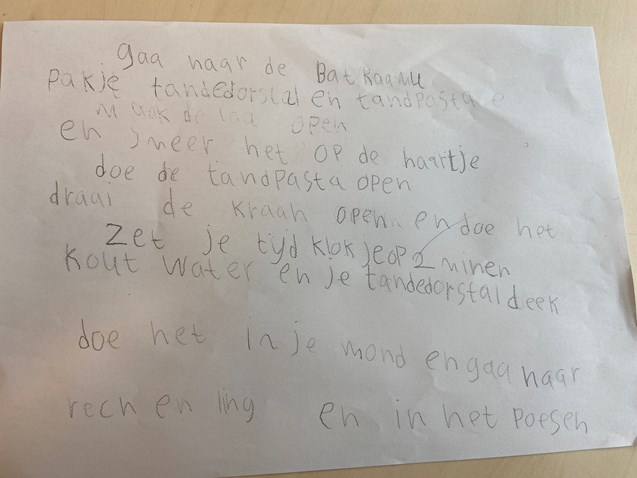 gaa naar de Batkaamu
pakje tandedorstal en tandpasta e
maak de laa open
en smeer het op de haartje
doe de tandpasta open
draai de kraan open en doe het
Zet je tijdklokje op 2 minen
kout water en je tandedorstal deek
doe het in je mond en gaa naar
rech en ling en in het poesen